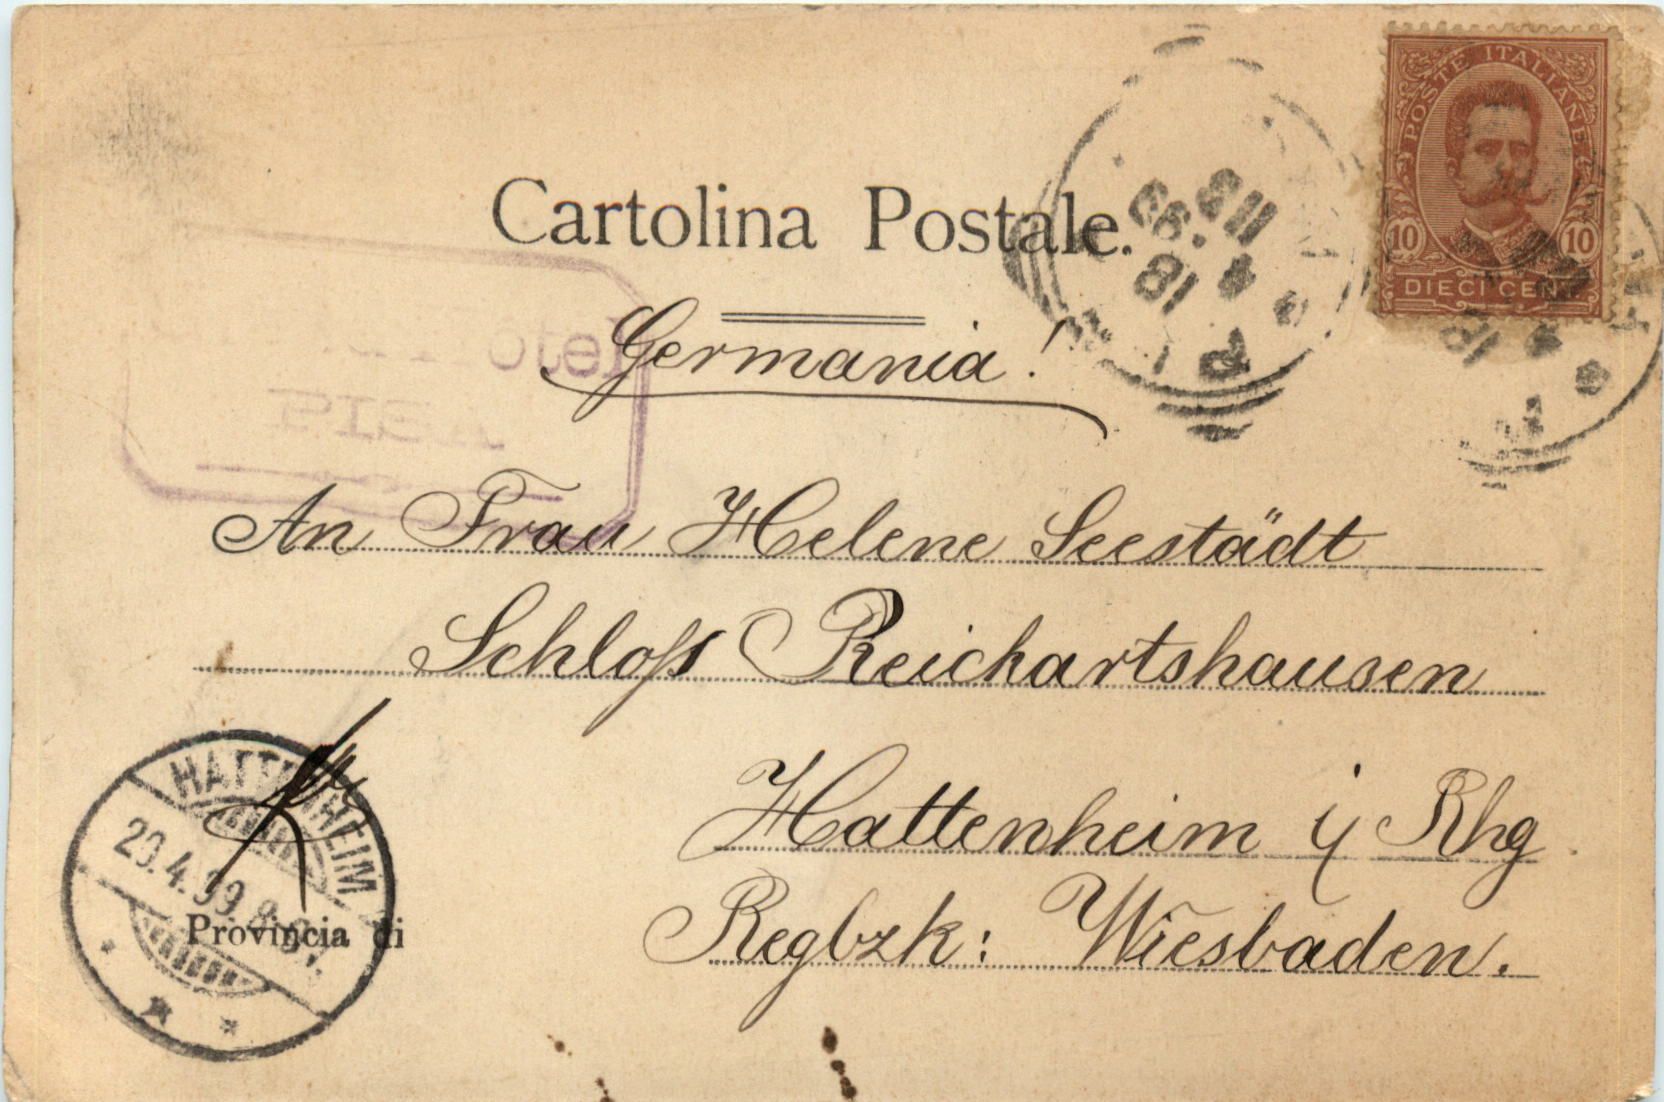 POSTE ITALIANE
10 10
DIECI CENT.
Cartolina Postale.
18 4 99
Germania!
PISA
An Frau Helene Seestädt
Schloß Reichartshausen
Hattenheim i/ Rhg
Regbzk: Wiesbaden.
HATTENHEIM
20.4.99
Provincia di